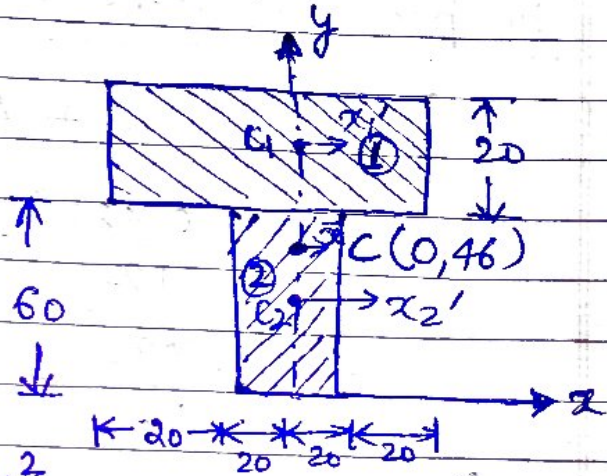 y
C₁ x₁' ① 20
x̄ C (0,46)
②
C₂ x₂'
60
x
20 20 20 20
2